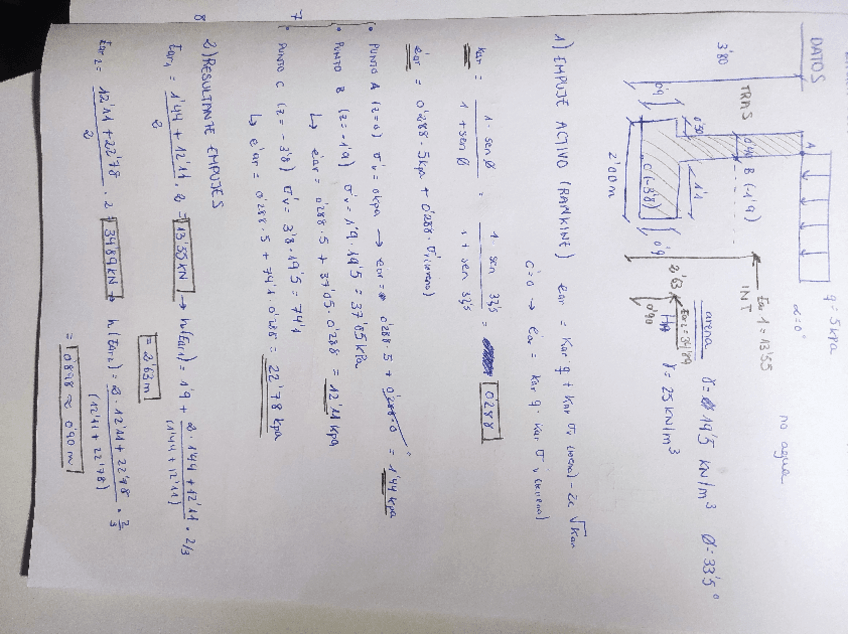 DATOS
q = 5 kpa
α = 0°
no agua
A
TRAS
INT
3'80
0'40
B (-1'9)
Ear 1 = 13'55
arena
γ = 19'5 KN/m³
Ø = 33'5°
γ = 25 KN/m³
0'50
1'1
0'9
C (-3'8)
0'9
2'63
Ear2 = 34'89
0'90
2'00 m
1) EMPUJE ACTIVO (RANKINE) ear = Kar · q + Kar σv (arena) - 2c √Kar
c = 0 → e'ar = Kar q · Kar σ'v (arena)
Kar = 1 - sen Ø / 1 + sen Ø = 1 - sen 33'5 / 1 + sen 33'5 = 0'288
e'ar = 0'288 · 5 kpa + 0'288 · σ'v (arena)
PUNTO A (z=0) σ'v = 0 kpa → ear = 0'288 · 5 + 0'288 · 0 = 1'44 kpa
PUNTO B (z=-1'9) σ'v = 1'9 · 19'5 = 37'05 kPa
↳ e'ar = 0'288 · 5 + 37'05 · 0'288 = 12'11 kpa
7
PUNTO C (z=-3'8) σ'v = 3'8 · 19'5 = 74'1
↳ e'ar = 0'288 · 5 + 74'1 · 0'288 = 22'78 kpa
8
2) RESULTANTE EMPUJES
Ear1 = 1'44 + 12'11 / 2 · 2 = 13'55 KN → h(Ear1) = 1'9 + 2 · 1'44 + 12'11 / (1'44 + 12'11) · 2/3
= 2'63 m
Ear2 = 12'11 + 22'78 / 2 · 2 = 34'89 KN → h(Ear2) = 2 · 12'11 + 22'78 / (12'11 + 22'78) · 2/3
= 0'898 ≈ 0'90 m